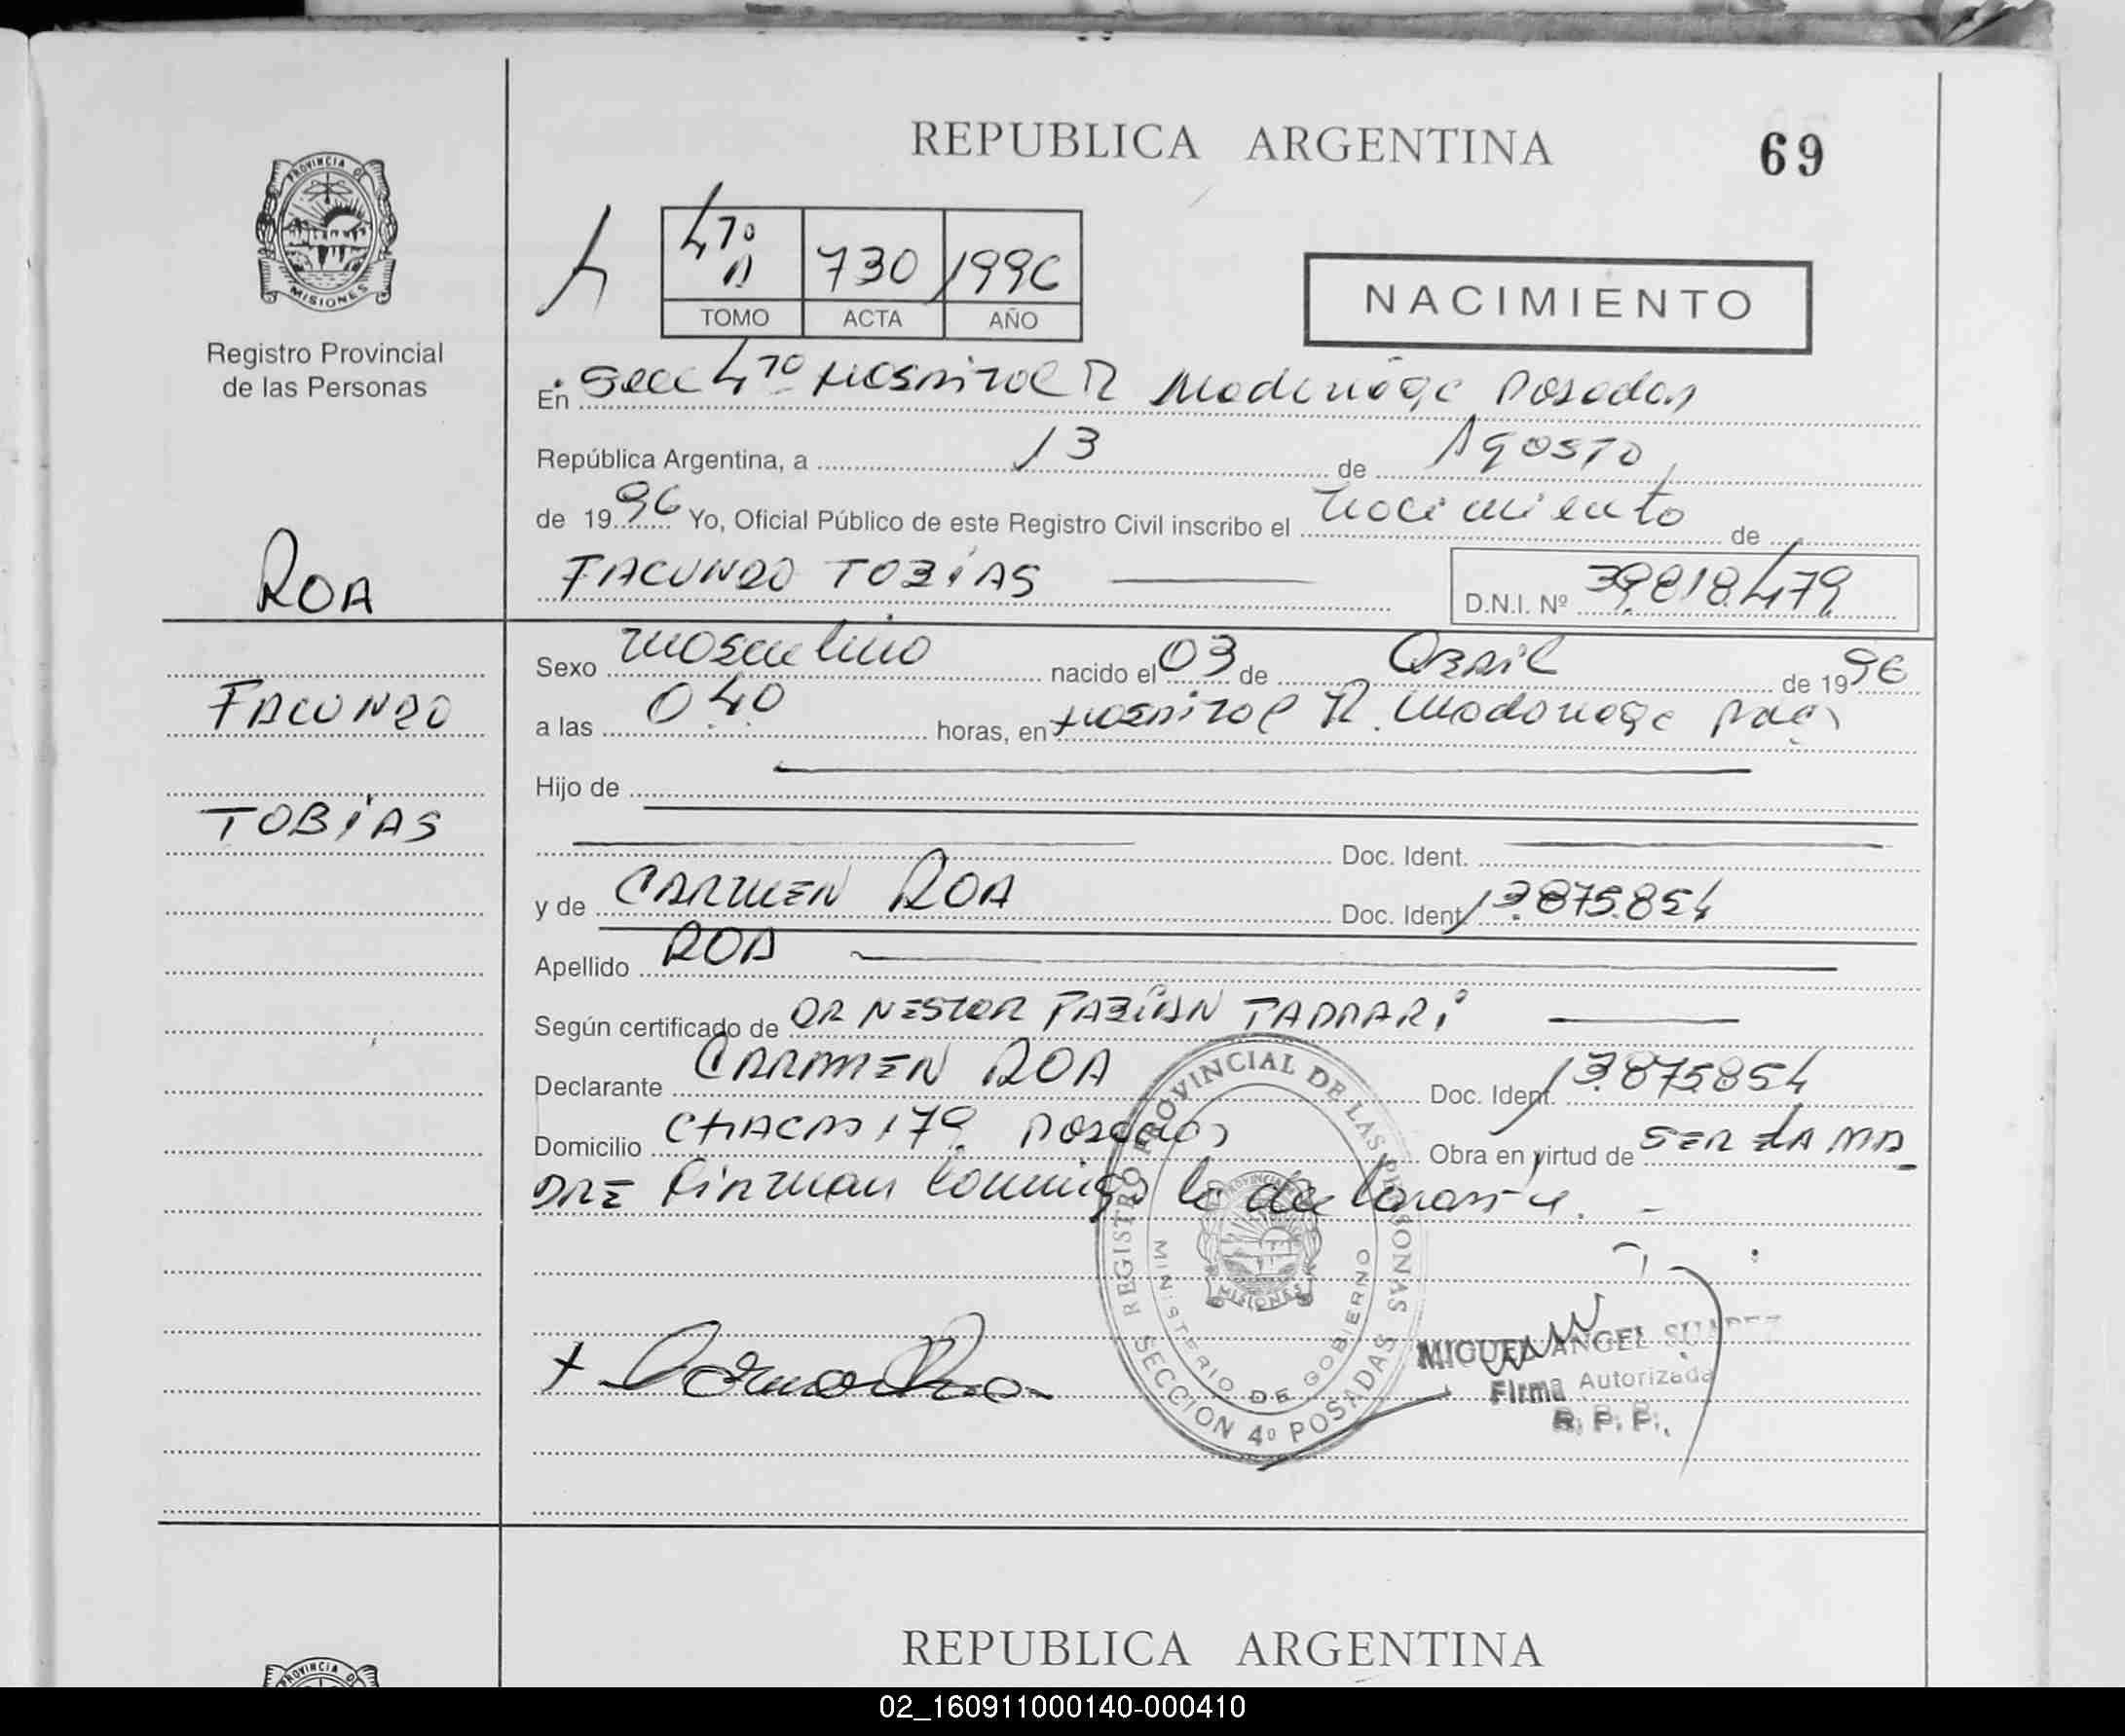 REPUBLICA ARGENTINA
69
PROVINCIA DE
MISIONES
Registro Provincial
de las Personas
4ta A 730 1996
TOMO ACTA AÑO
NACIMIENTO
En Secc 4ta Hospital R Madariaga Posadas
República Argentina, a 13 de Agosto
de 1996 Yo, Oficial Público de este Registro Civil inscribo el nacimiento de
ROA
FACUNDO TOBIAS D.N.I. Nº 39.818.479
Sexo masculino nacido el 03 de Abril de 1996
FACUNDO
a las 0.40 horas, en Hospital R. Madariaga Pdas
Hijo de
TOBIAS
Doc. Ident.
y de CARMEN ROA Doc. Ident. 13.875.854
Apellido ROA
Según certificado de DR NESTOR FABIAN
Declarante CARMEN ROA Doc. Ident. 13.875854
Domicilio CHACRA 179 Posadas Obra en virtud de SER LA MA
DRE Firman conmigo la declarante. -
REGISTRO PROVINCIAL DE LAS PERSONAS
MINISTERIO DE GOBIERNO
PROVINCIA DE
MISIONES
SECCION 4º POSADAS
MIGUEL ANGEL SUAREZ
Firma Autorizada
R. P. P.
REPUBLICA ARGENTINA
PROVINCIA DE
02_160911000140-000410